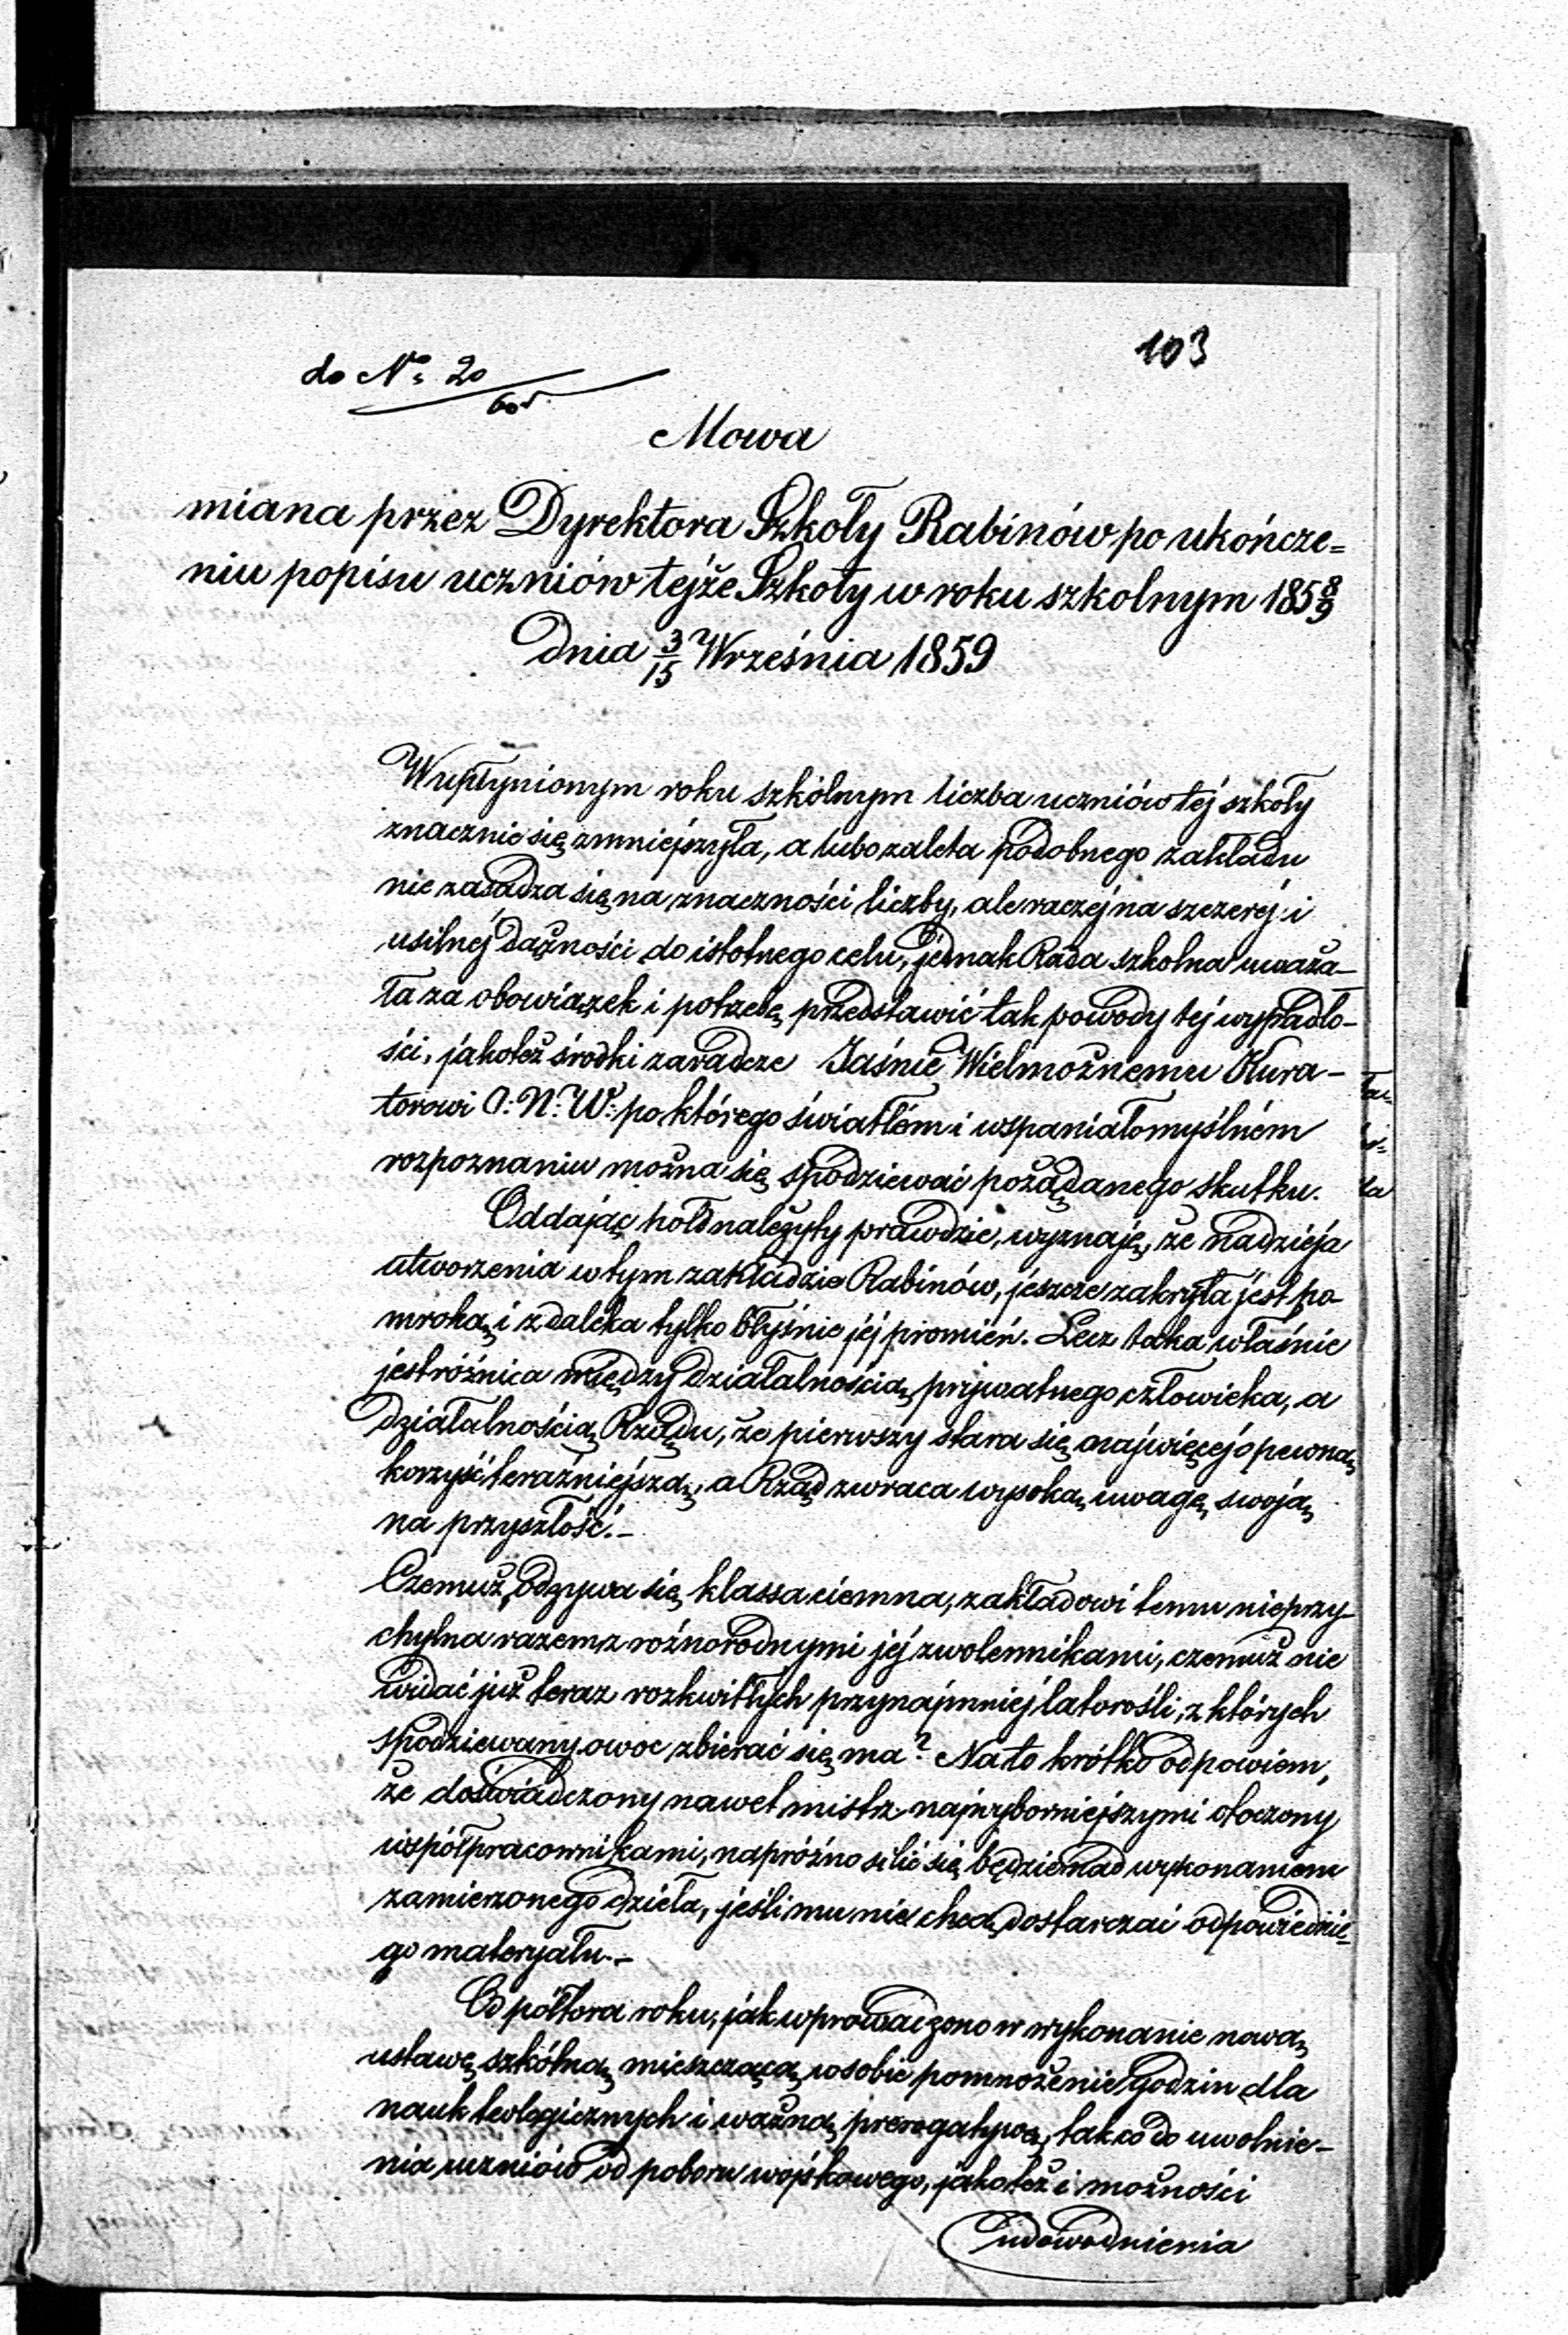 do Nº 20/60 r.
103
Mowa
miana przez Dyrektora Szkoły Rabinów po ukończe=
niu popisu uczniów tejże Szkoły w roku szkolnym 185 8/9
Dnia 3/15 Września 1859
W upłynionym roku szkólnym liczba uczniów téj szkoły
znacznie się zmniejszyła, a lubo zaleta podobnego zakładu
nie zasadza się na znaczności liczby, ale raczéj na szczeréj i
usilnéj dążności do istotnego celu, jednak Rada szkolna uważa-
ła za obowiązek i potrzebę przedstawić tak powody téj wypadło-
ści, jakoteż środki zaradcze Jaśnie Wielmożnemu Kura-
torowi O: N: W: po którego światłém i wspaniałomyślném
rozpoznaniu można się spodziewać pożądanego skutku.
Oddając hołd należyty prawdzie, wyznaję, że nadzieja
utworzenia w tym zakładzie Rabinów, jeszcze zakryta jest po-
mroką i zdaleka tylko błyśnie jéj promień. Lecz taka właśnie
jest różnica między działalnością prywatnego człowieka, a
działalnością Rządu, że pierwszy stara się najwięcéj o pewną
korzyść teraźniejszą, a Rząd zwraca wysoką uwagę swoją
na przyszłość.-
Czemuż, odzywa się klassa ciemna, zakładowi temu nieprzy-
chylna razem z różnorodnymi jéj zwolennikami, czemuż nie
widać już teraz rozkwitłych przynajmniéj latorośli, z których
spodziewany owoc zbierać się ma? Na to krótko odpowiem,
że doświadczony nawet mistrz najwyborniejszymi otoczony
współpracownikami, napróżno silić się będzie nad wykonaniem
zamierzonego dzieła, jeśli mu nie chcą dostarczać odpowiednie-
go materyału.-
Od półtora roku, jak wprowadzono w wykonanie nową
ustawę szkólną mieszczącą w sobie pomnożenie godzin dla
nauk teologicznych i ważną prerogatywę, tak co do uwolnie-
nia uczniów od poboru wojskowego, jakoteż i możności
udowodnienia